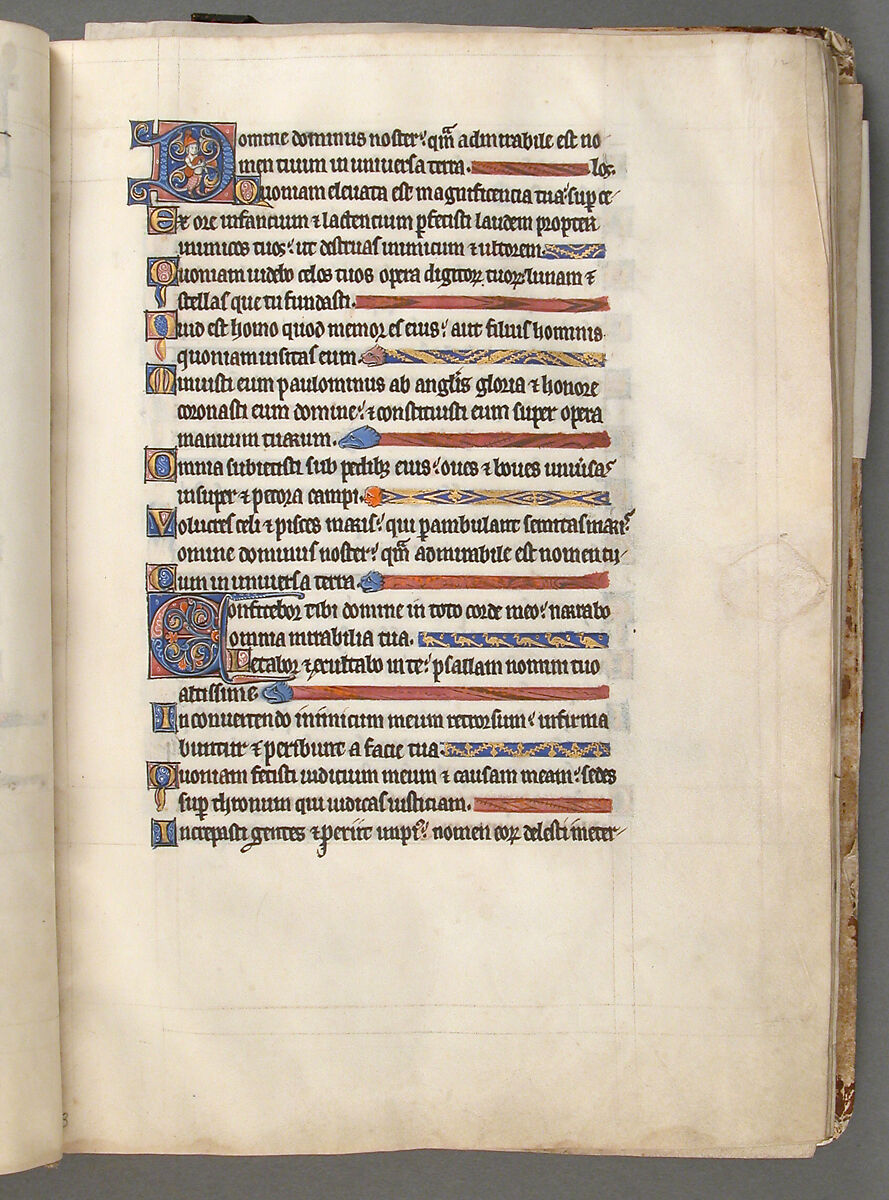 Domine dominus noster: qm̄ admirabile est no
men tuum in uniuersa terra. los.
Quoniam eleuata est magnificencia tua: sup ce
Ex ore infancium ⁊ lactencium pfecisti laudem propter
inimicos tuos: ut destruas inimicum ⁊ ultorem.
Quoniam uidebo celos tuos opera digitoꝝ tuoꝝ: lunam ⁊
stellas que tu fundasti.
Quid est homo quod memor es eius: aut filius hominis
quoniam uisitas eum.
Minuisti eum paulominus ab anglis gloria ⁊ honore
coronasti eum domine: ⁊ constituisti eum super opera
manuum tuarum.
Omnia subiecisti sub pedibꝫ eius: oues ⁊ boues
insuper ⁊ pecora campi.
Volucres celi ⁊ pisces maris: qui pambulant semitas mari
omine dominus noster: qm̄ admirabile est nomen tu
um in uniuersa terra.
Confitebor tibi domine in toto corde meo: narrabo
omnia mirabilia tua.
Letabor ⁊ exultabo in te: psallam nomini tuo
altissime.
In conuertendo inimicum meum retrorsum: infirma
buntur ⁊ peribunt a facie tua.
Quoniam fecisti iudicium meum ⁊ causam meam: sedes
sup thronum qui iudicas iusticiam.
Increpasti gentes ⁊ periit impi: nomen eoꝝ delesti in eter